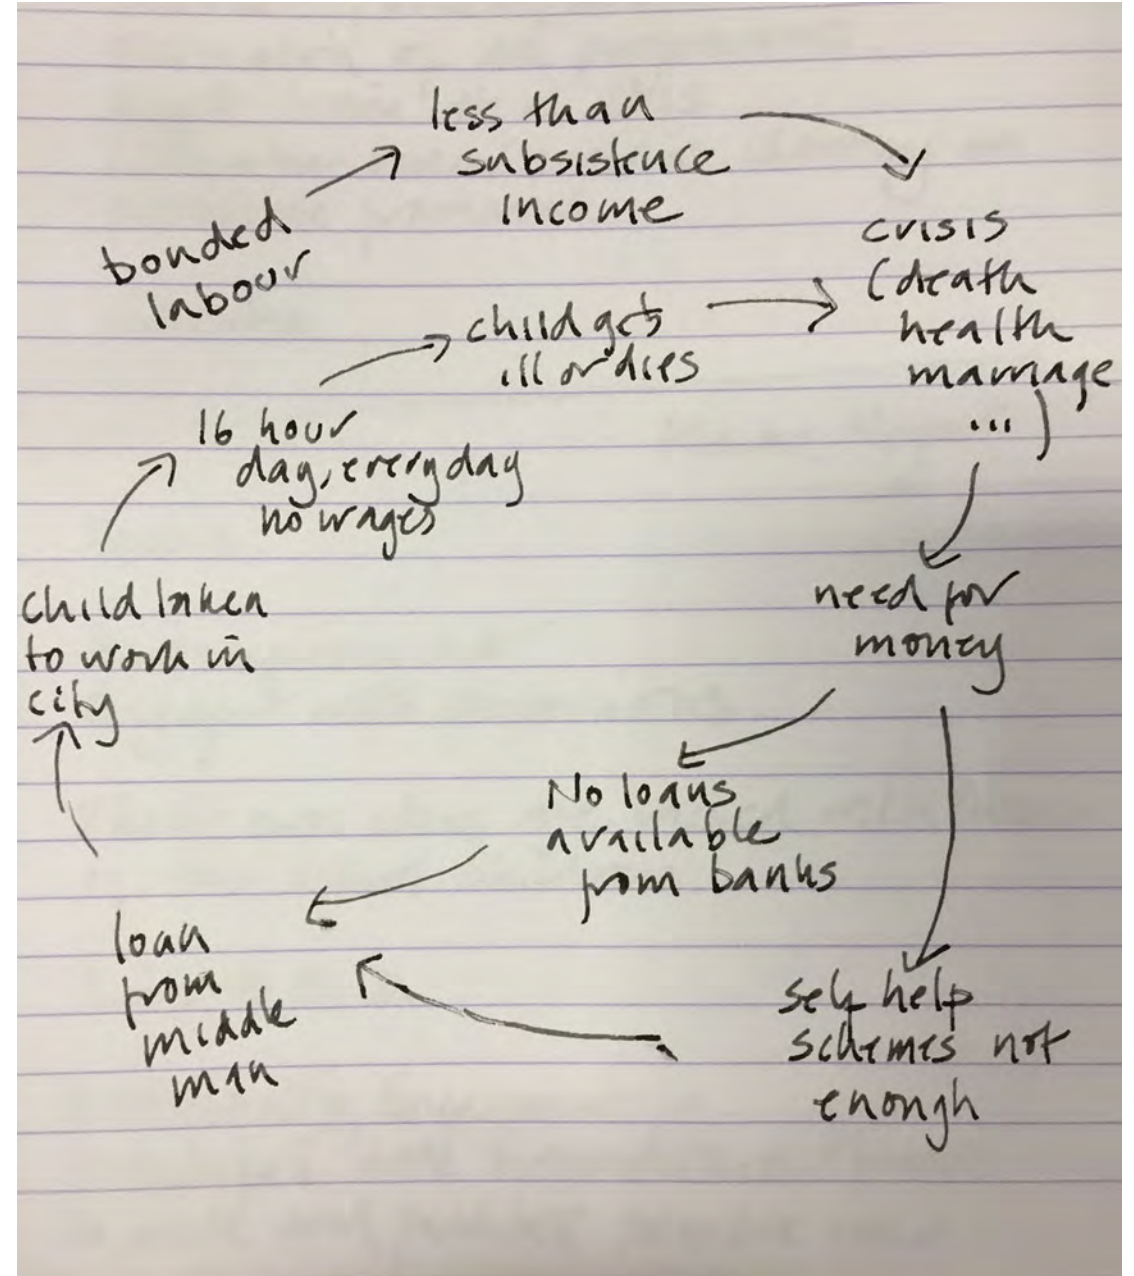 less than
subsistence
income
bonded
labour
crisis
(death
health
marriage
...)
child gets
ill or dies
16 hour
day, every day
no wages
child taken
to work in
city
need for
money
No loans
available
from banks
loan
from
middle
man
self help
schemes not
enough